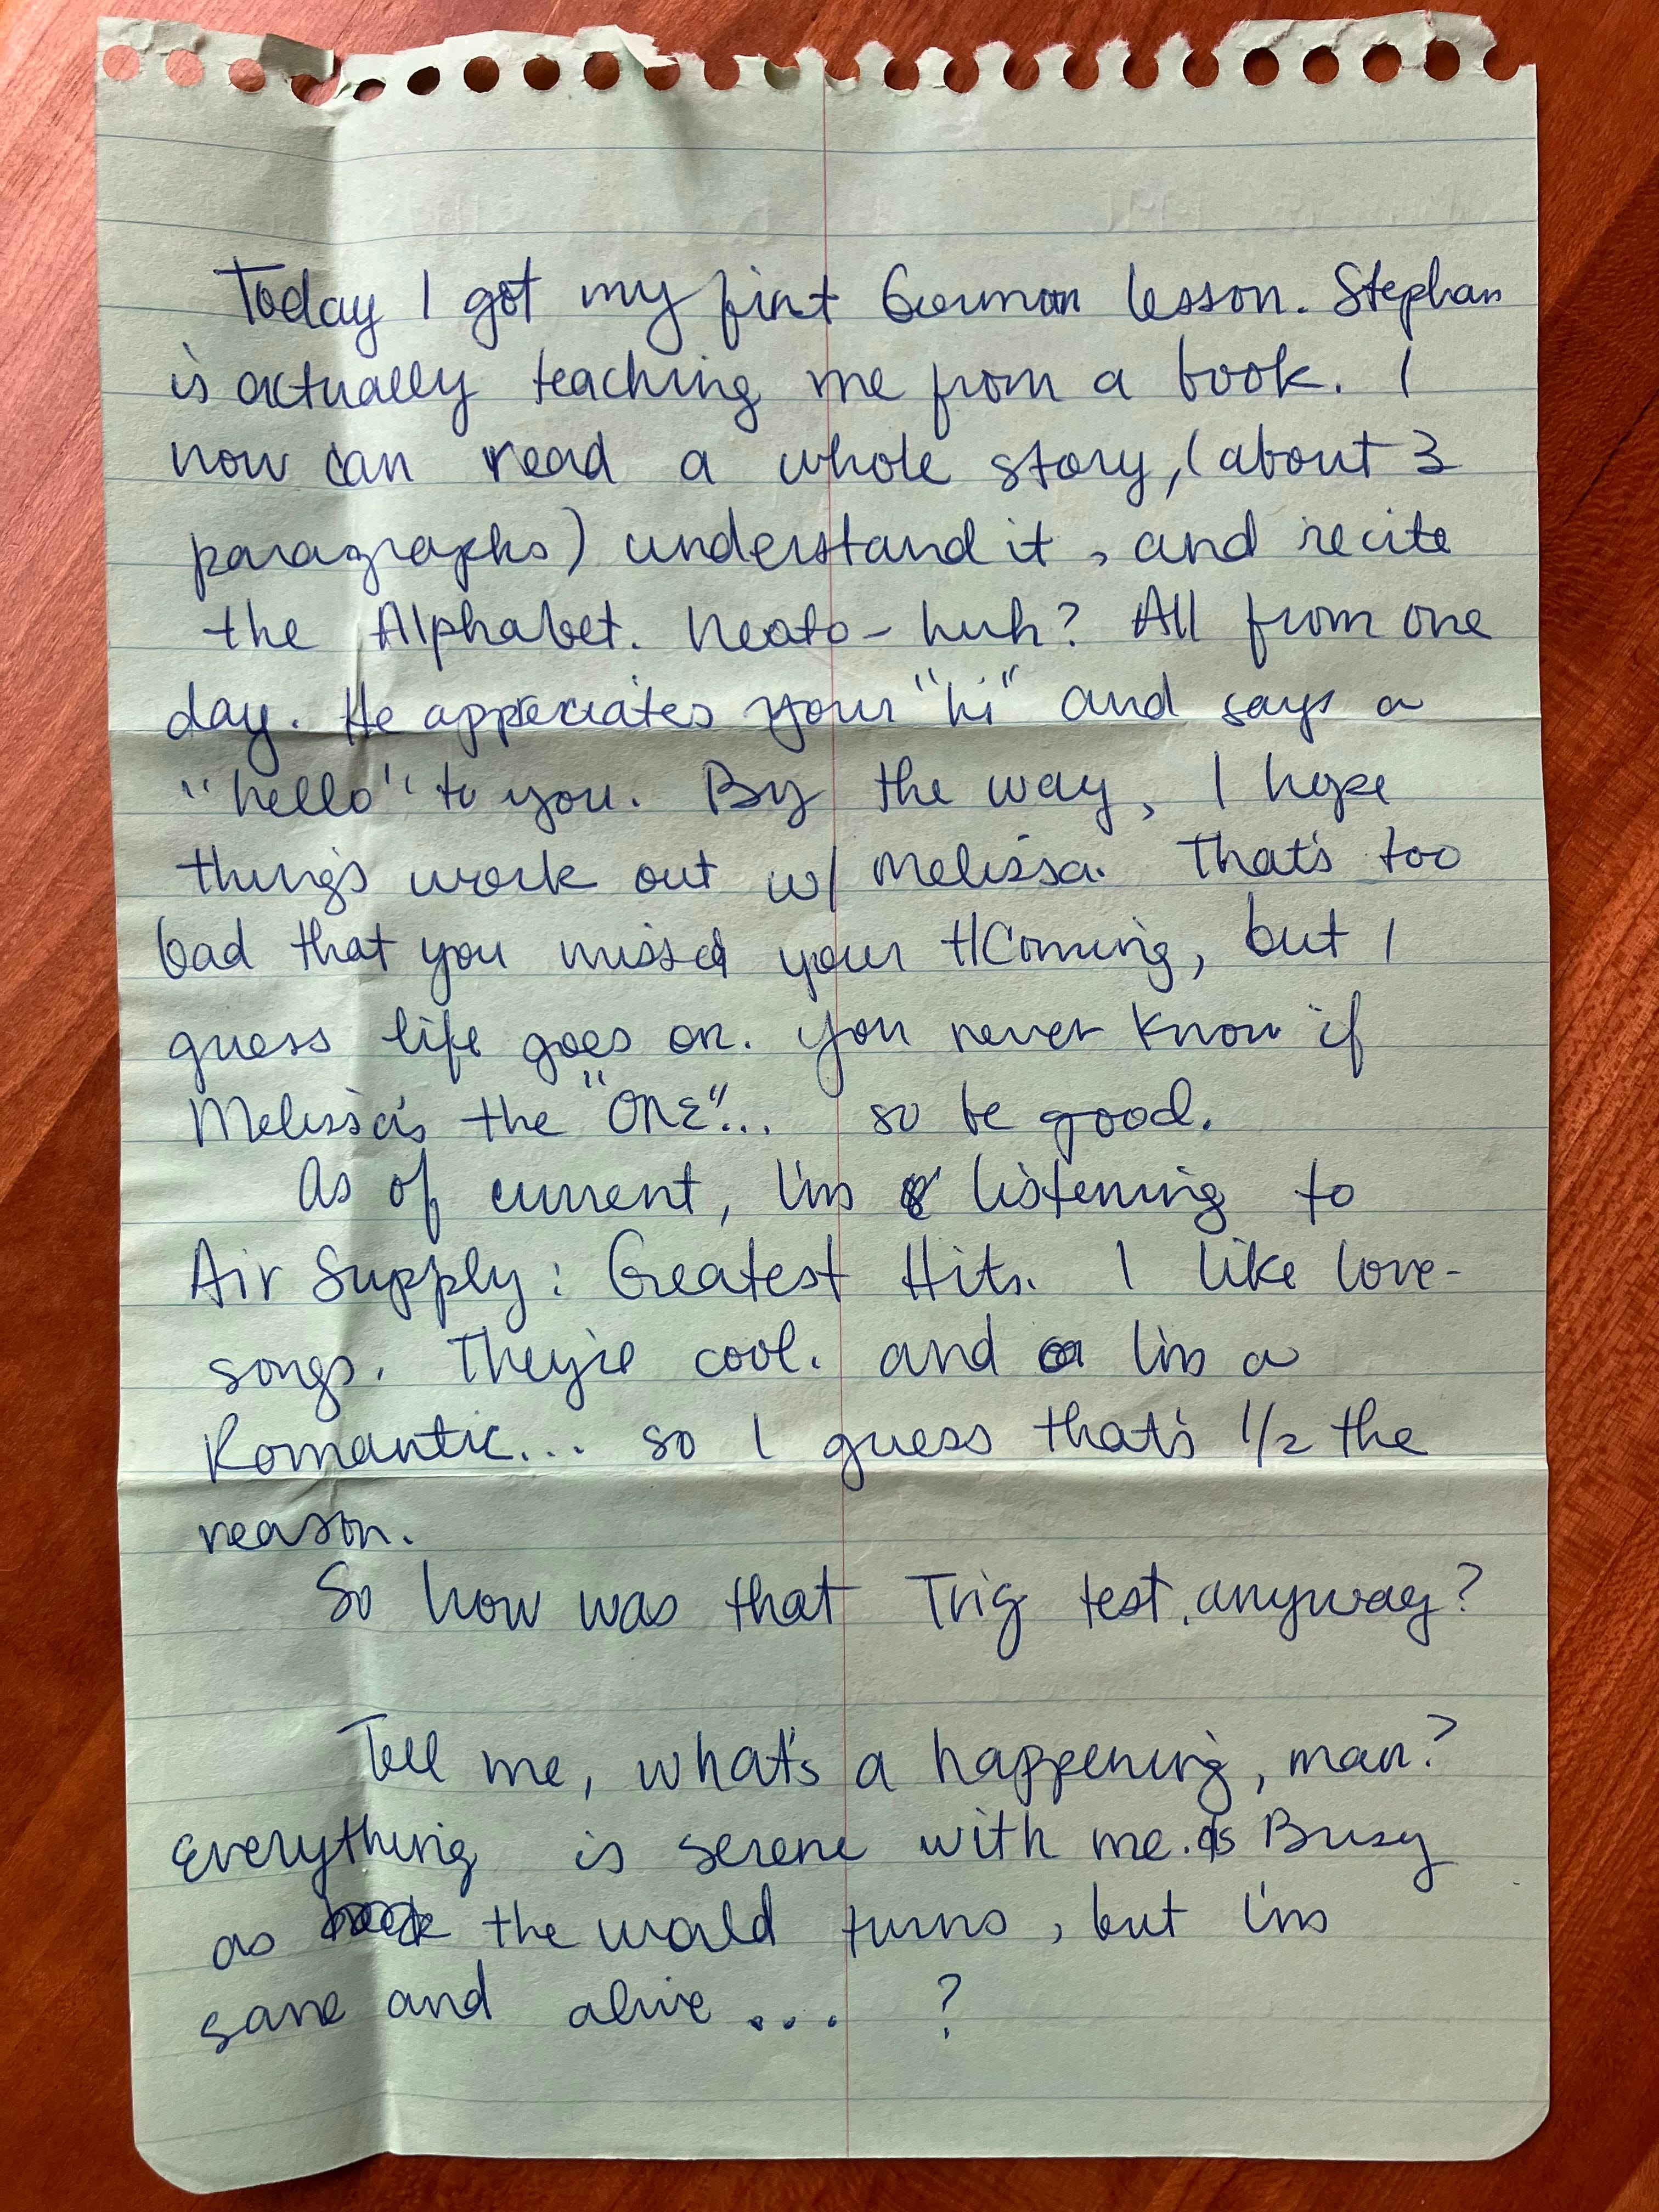 Today I got my first German lesson. Stephan
is actually teaching me from a book. I
now can read a whole story, (about 3
paragraphs) understand it, and recite
the Alphabet. Neato - huh? All from one
day. He appreciates your "hi" and says a
"hello" to you. By the way, I hope
things work out w/ Melissa. That's too
bad that you missed your HComing, but I
guess life goes on. You never know if
Melissa's the "One"... so be good.
As of current, I'm listening to
Air Supply: Greatest Hits. I like love-
songs. They're cool. and I'm a
Romantic... so I guess that's 1/2 the
reason.
So how was that Trig test, anyway?
Tell me, what's a happening, man?
Everything is serene with me. as Busy
as the world turns, but I'm
sane and alive... ?